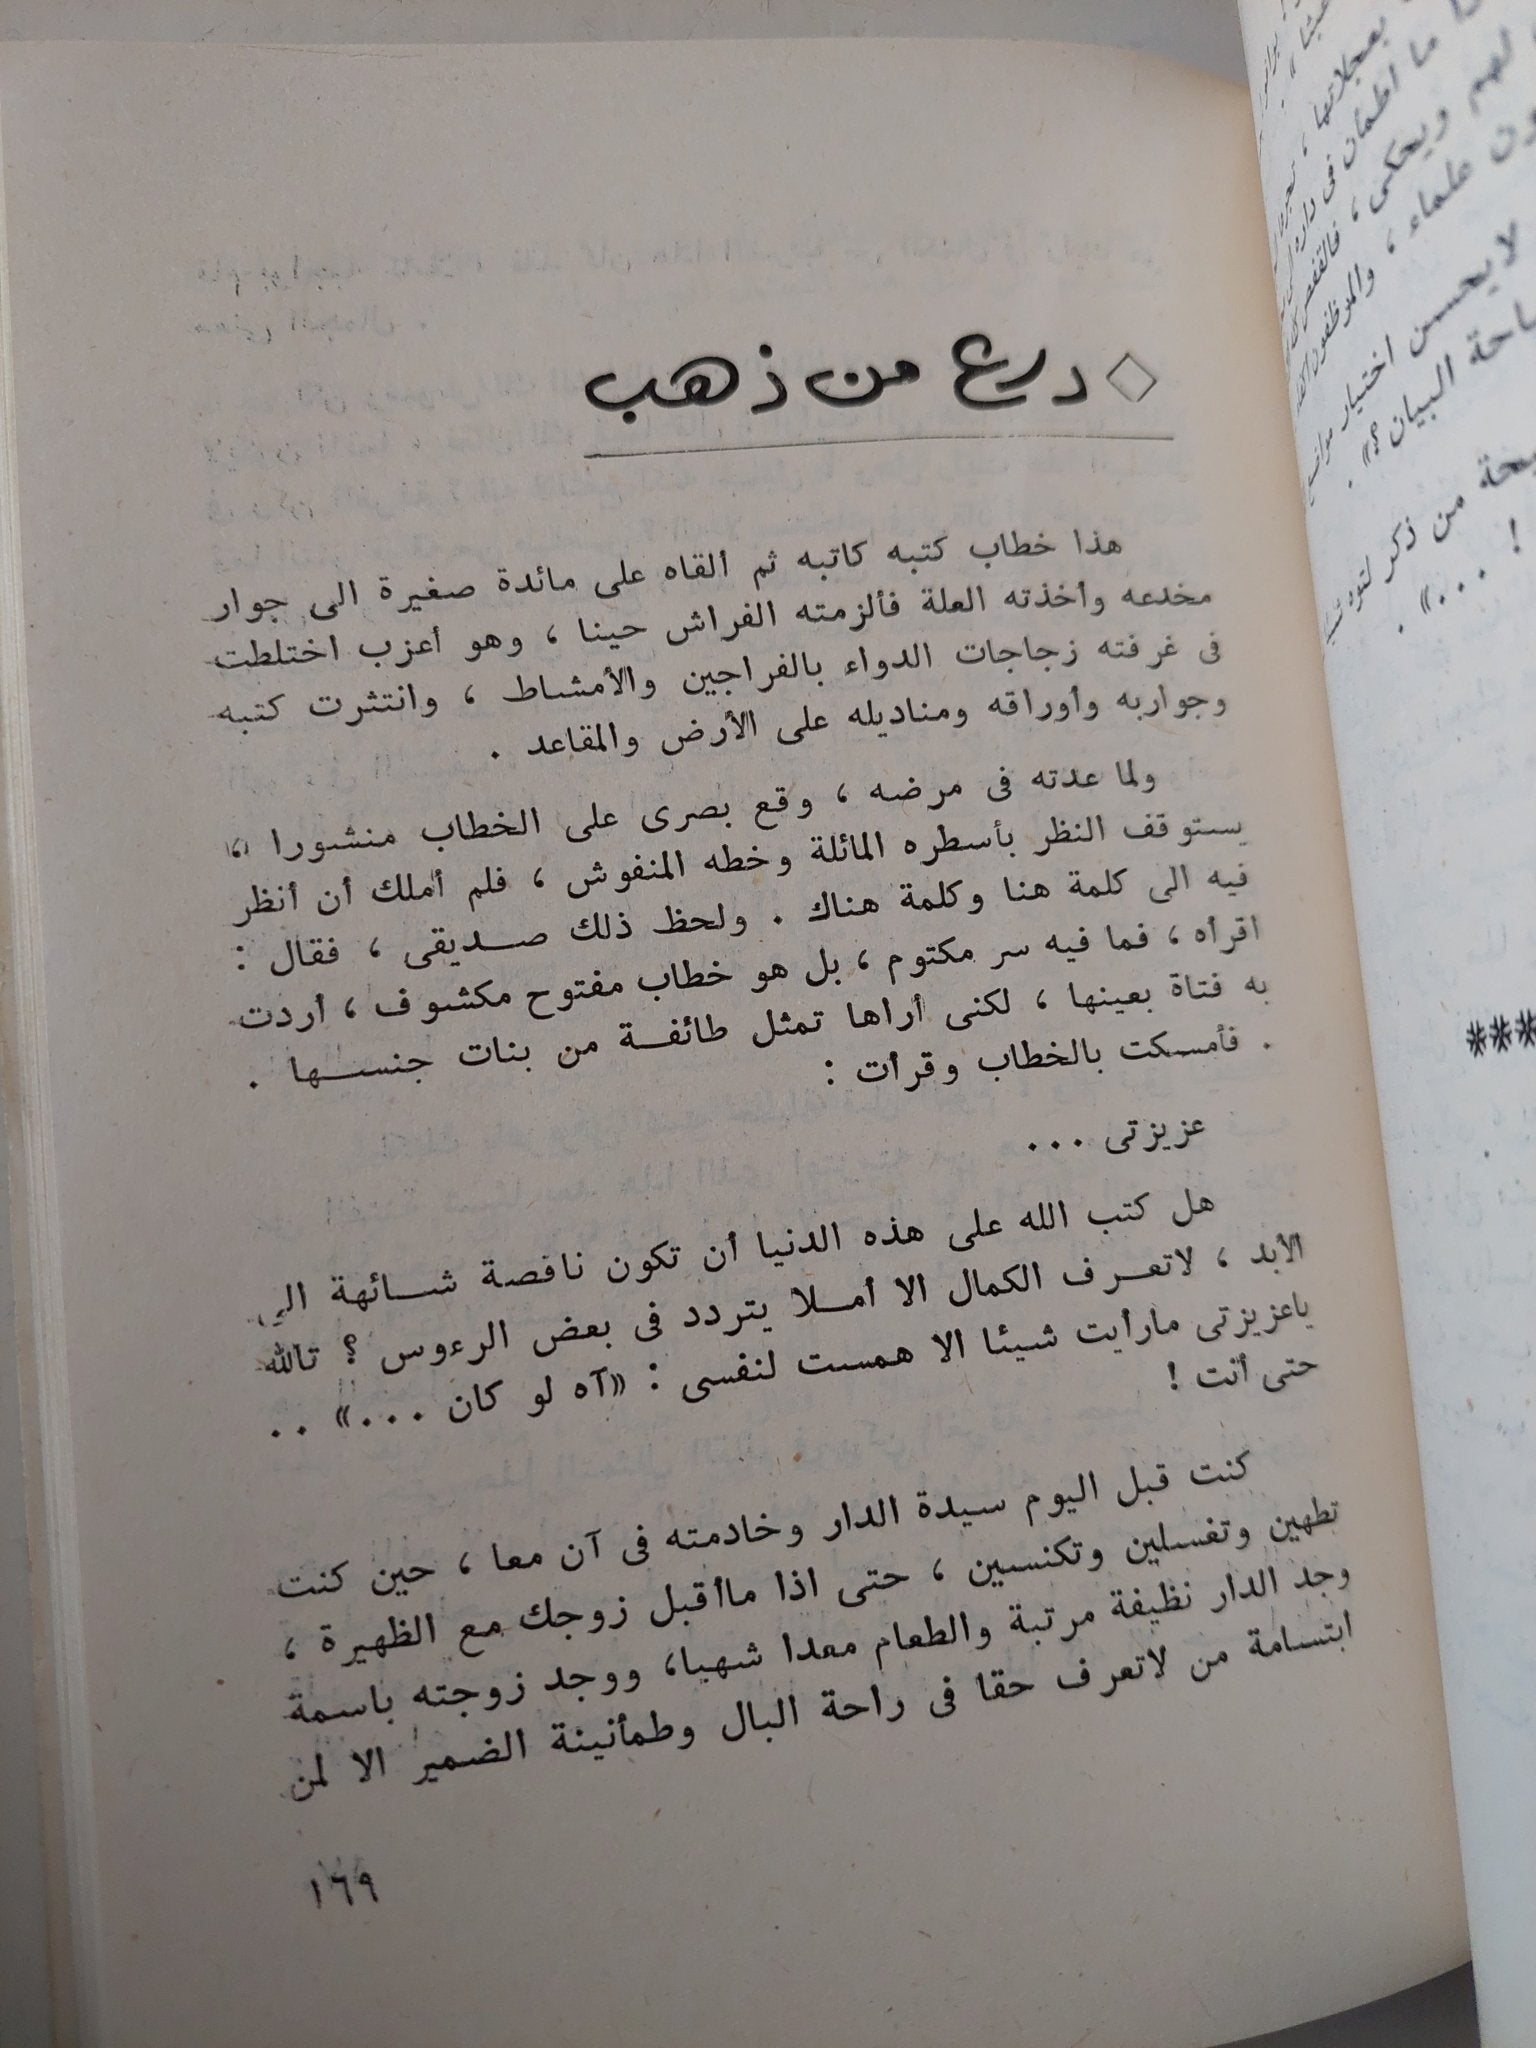 درع من ذهب
هذا خطاب كتبه كاتبه ثم القاه على مائدة صغيرة الى جوار
مخدعه وأخذته العلة فألزمته الفراش حينا ، وهو أعزب اختلطت
فى غرفته زجاجات الدواء بالفراجين والأمشاط ، وانتثرت كتبه
وجواربه وأوراقه ومناديله على الأرض والمقاعد .
ولما عدته فى مرضه ، وقع بصرى على الخطاب منشورا
يستوقف النظر بأسطره المائلة وخطه المنفوش ، فلم أملك أن أنظر
فيه الى كلمة هنا وكلمة هناك . ولحظ ذلك صديقى ، فقال :
اقرأه ، فما فيه سر مكتوم ، بل هو خطاب مفتوح مكشوف ، أردت
به فتاة بعينها ، لكنى أراها تمثل طائفة من بنات جنسها .
. فأمسكت بالخطاب وقرأت :
عزيزتى ...
هل كتب الله على هذه الدنيا أن تكون ناقصة شائهة الى
الأبد ، لاتعرف الكمال الا أملا يتردد فى بعض الرءوس ؟ تالله
ياعزيزتى مارأيت شيئا الا همست لنفسى : «آه لو كان ...» ..
حتى أنت !
كنت قبل اليوم سيدة الدار وخادمته فى آن معا ، حين كنت
تطهين وتغسلين وتكنسين ، حتى اذا ماأقبل زوجك مع الظهيرة ،
وجد الدار نظيفة مرتبة والطعام معدا شهيا، ووجد زوجته باسمة
ابتسامة من لاتعرف حقا فى راحة البال وطمأنينة الضمير الا لمن
١٦٩
بعجلاتها ،
ما اطمأن فى داره
لهم ويحكى ، فالقفص
ون علماء ، والموظفون
لايحسن اختيار
احة البيان ؟» .
من ذكر
! ...» .
***